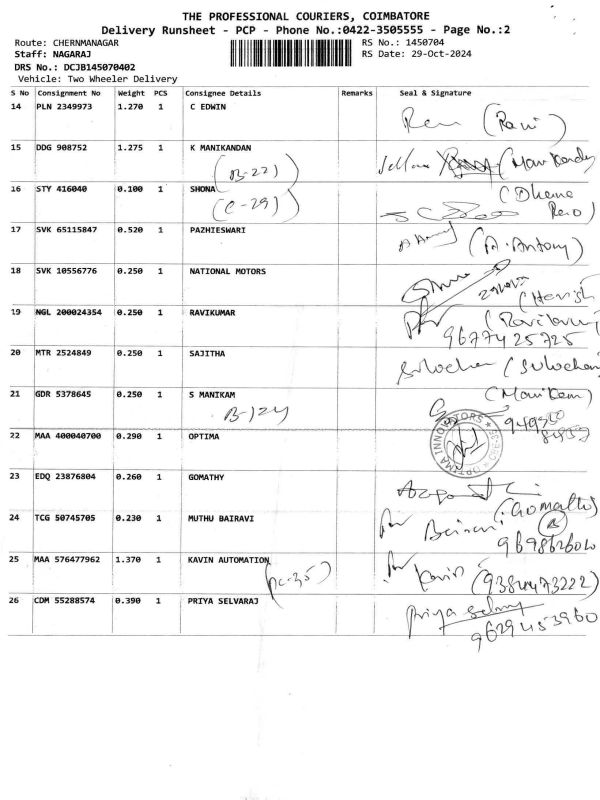 THE PROFESSIONAL COURIERS, COIMBATORE
Delivery Runsheet - PCP - Phone No.:0422-3505555 - Page No.:2
Route: CHERNMANAGAR RS No.: 1450704
Staff: NAGARAJ RS Date: 29-Oct-2024
DRS No.: DCJB145070402
Vehicle: Two Wheeler Delivery
S No Consignment No Weight PCS Consignee Details Remarks Seal & Signature
14 PLN 2349973 1.270 1 C EDWIN (Ravi)
15 DDG 908752 1.275 1 K MANIKANDAN
(B-22)
16 STY 416040 0.100 1 SHONA (Dhema
(C-29)
17 SVK 65115847 0.520 1 PAZHIESWARI (A. Antony)
18 SVK 10556776 0.250 1 NATIONAL MOTORS
(Harish
19 NGL 200024354 0.250 1 RAVIKUMAR
9677425725
20 MTR 2524849 0.250 1 SAJITHA
21 GDR 5378645 0.250 1 S MANIKAM
B-124
22 MAA 400040700 0.290 1 OPTIMA
23 EDQ 23876804 0.260 1 GOMATHY
24 TCG 50745705 0.230 1 MUTHU BAIRAVI
25 MAA 576477962 1.370 1 KAVIN AUTOMATION Kavin (9384473222)
26 CDM 55288574 0.390 1 PRIYA SELVARAJ Priya
9629453960